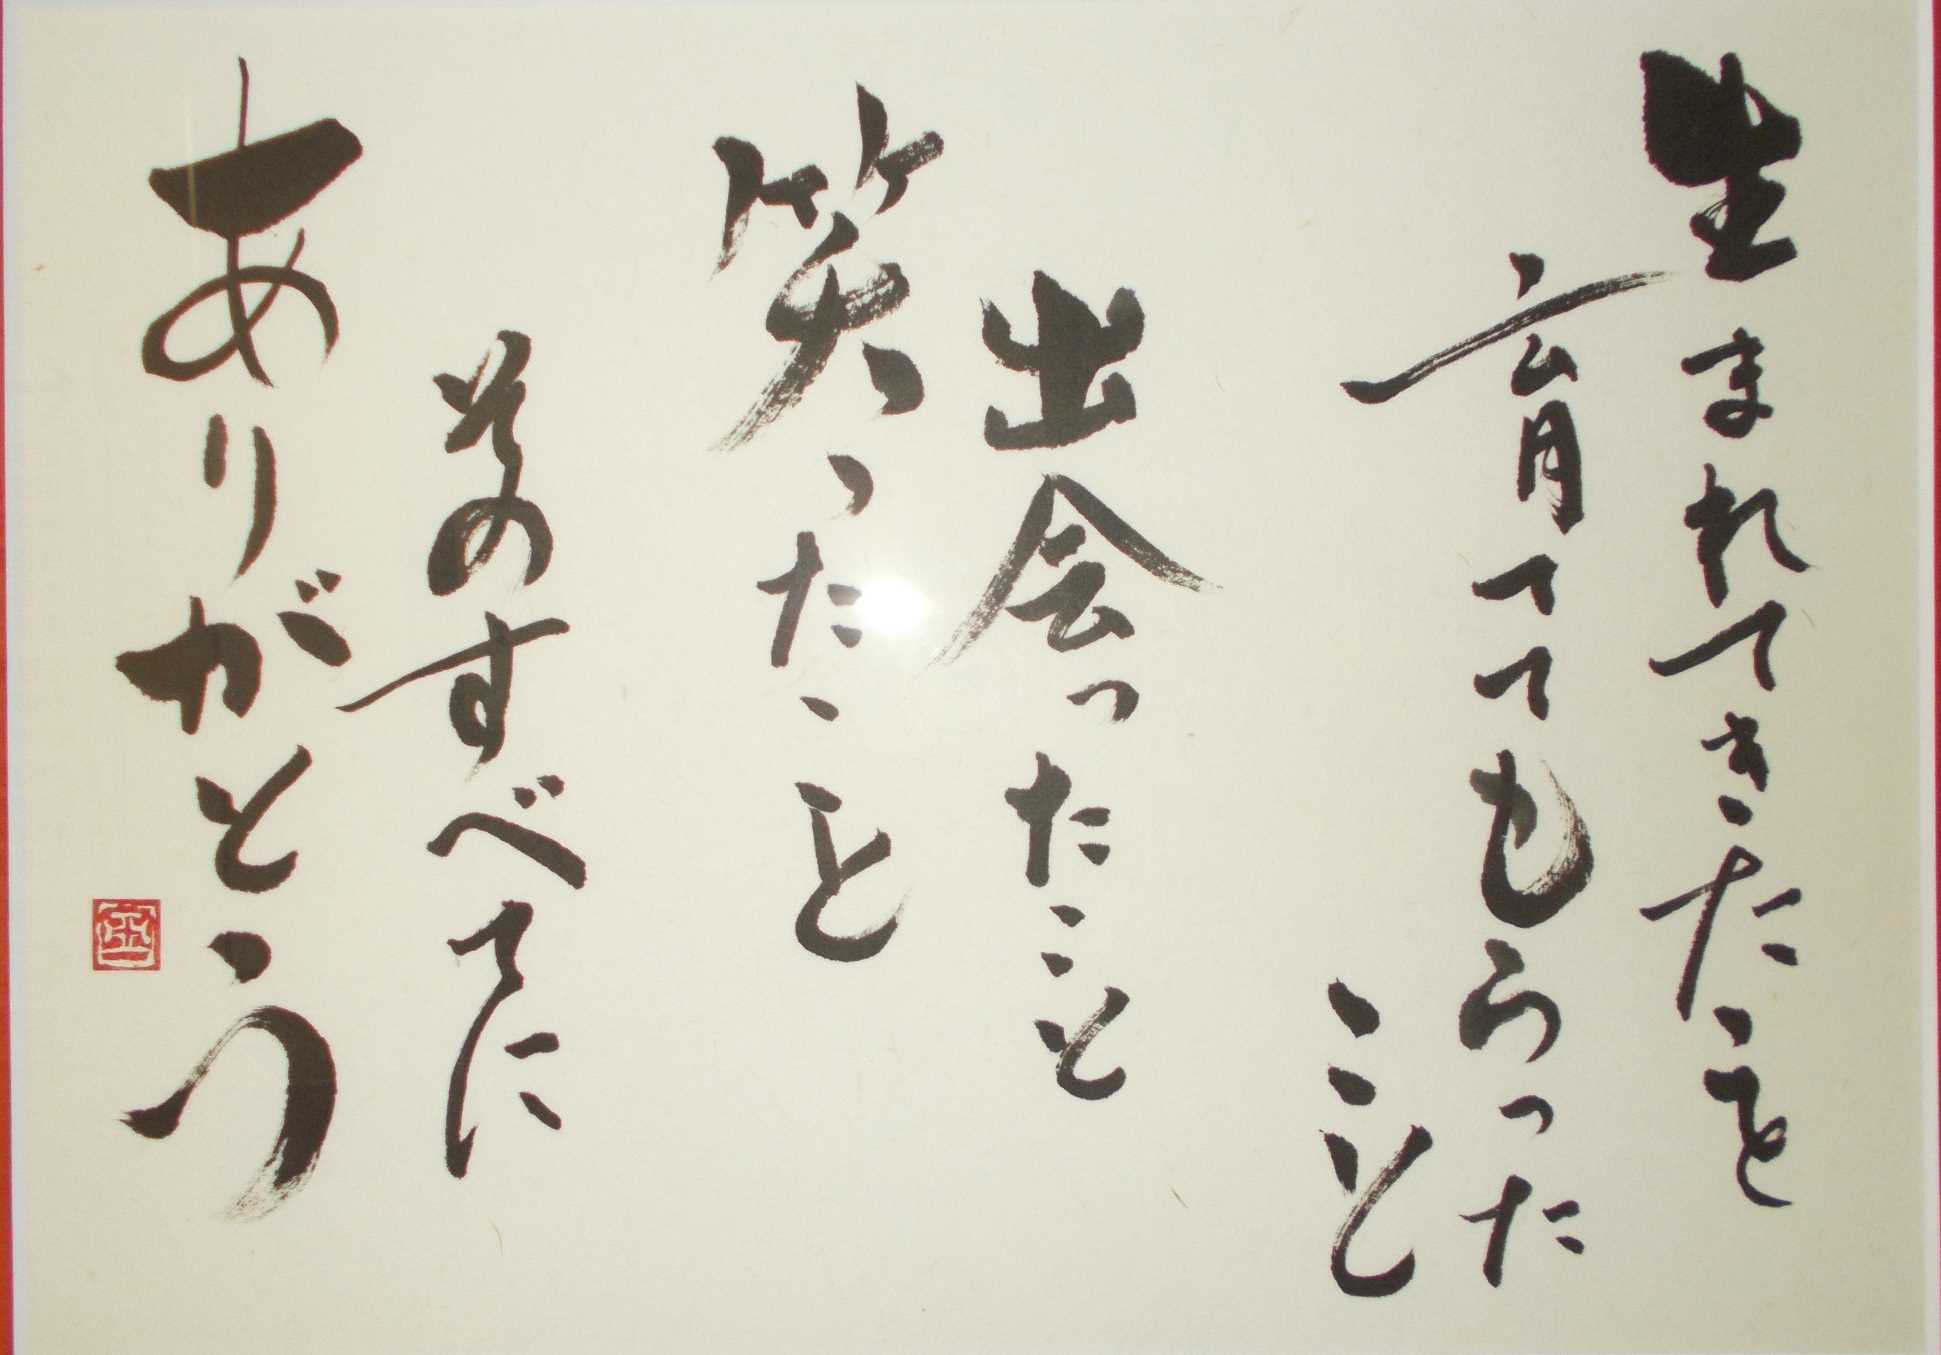 生まれてきたこと
育ててもらった
こと
出会ったこと
笑ったこと
そのすべてに
ありがとう